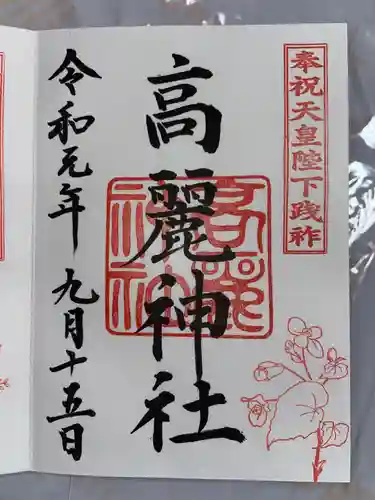 奉祝天皇陛下践祚
高麗神社
高麗神社
令和元年 九月十五日